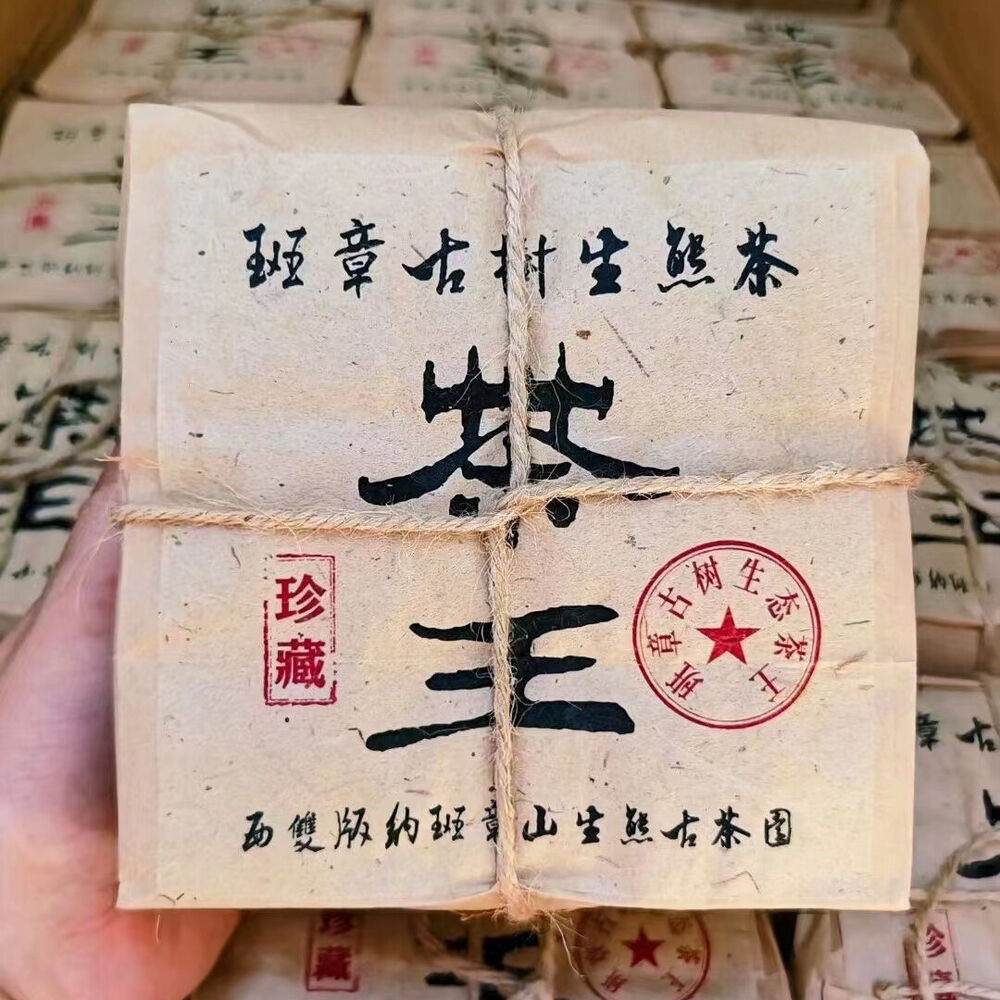 班章古树生熊茶
茶
王
珍藏
班章古树生态茶王
西雙版纳班章山生熊古茶园